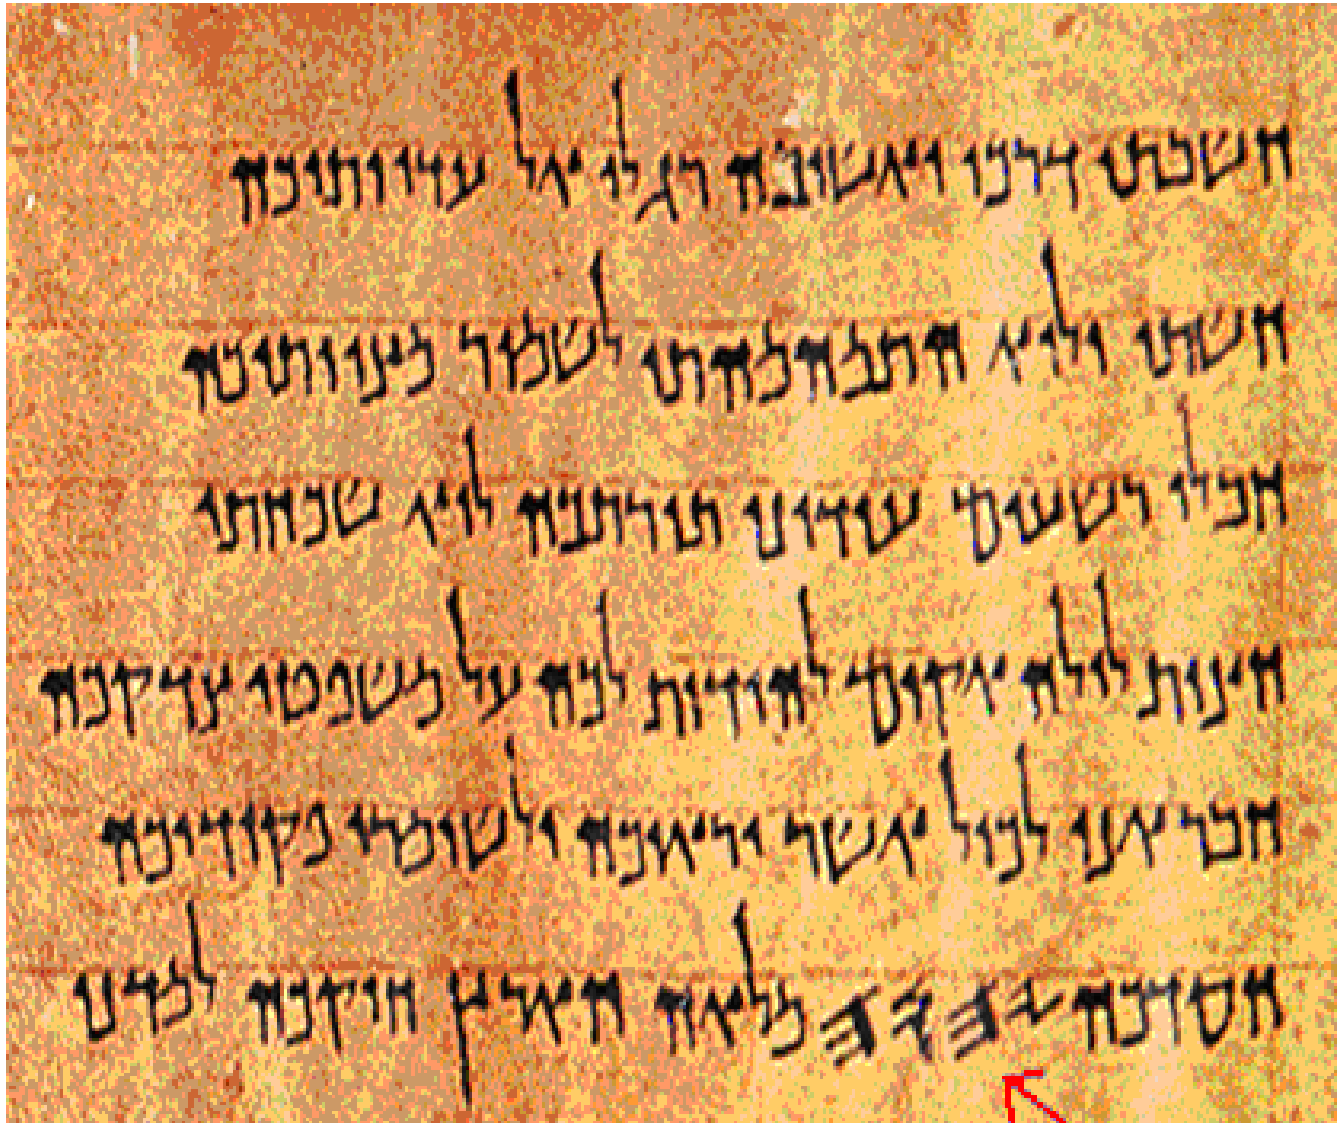 חשבתי דרכי ואשיבה רגלי אל עדוותיכה
חשתי ולוא התמהמהתי לשמר מצוותיכה
חבלי רשעים עודוני תורתכה לוא שכחתי
חצות לילה אקום להודות לכה על משפטי צדקכה
חבר אני לכול אשר יראוכה ולשומרי פקודיכה
חסדכה 𐤉𐤄𐤅𐤄 מלאה הארץ חוקיכה למדני